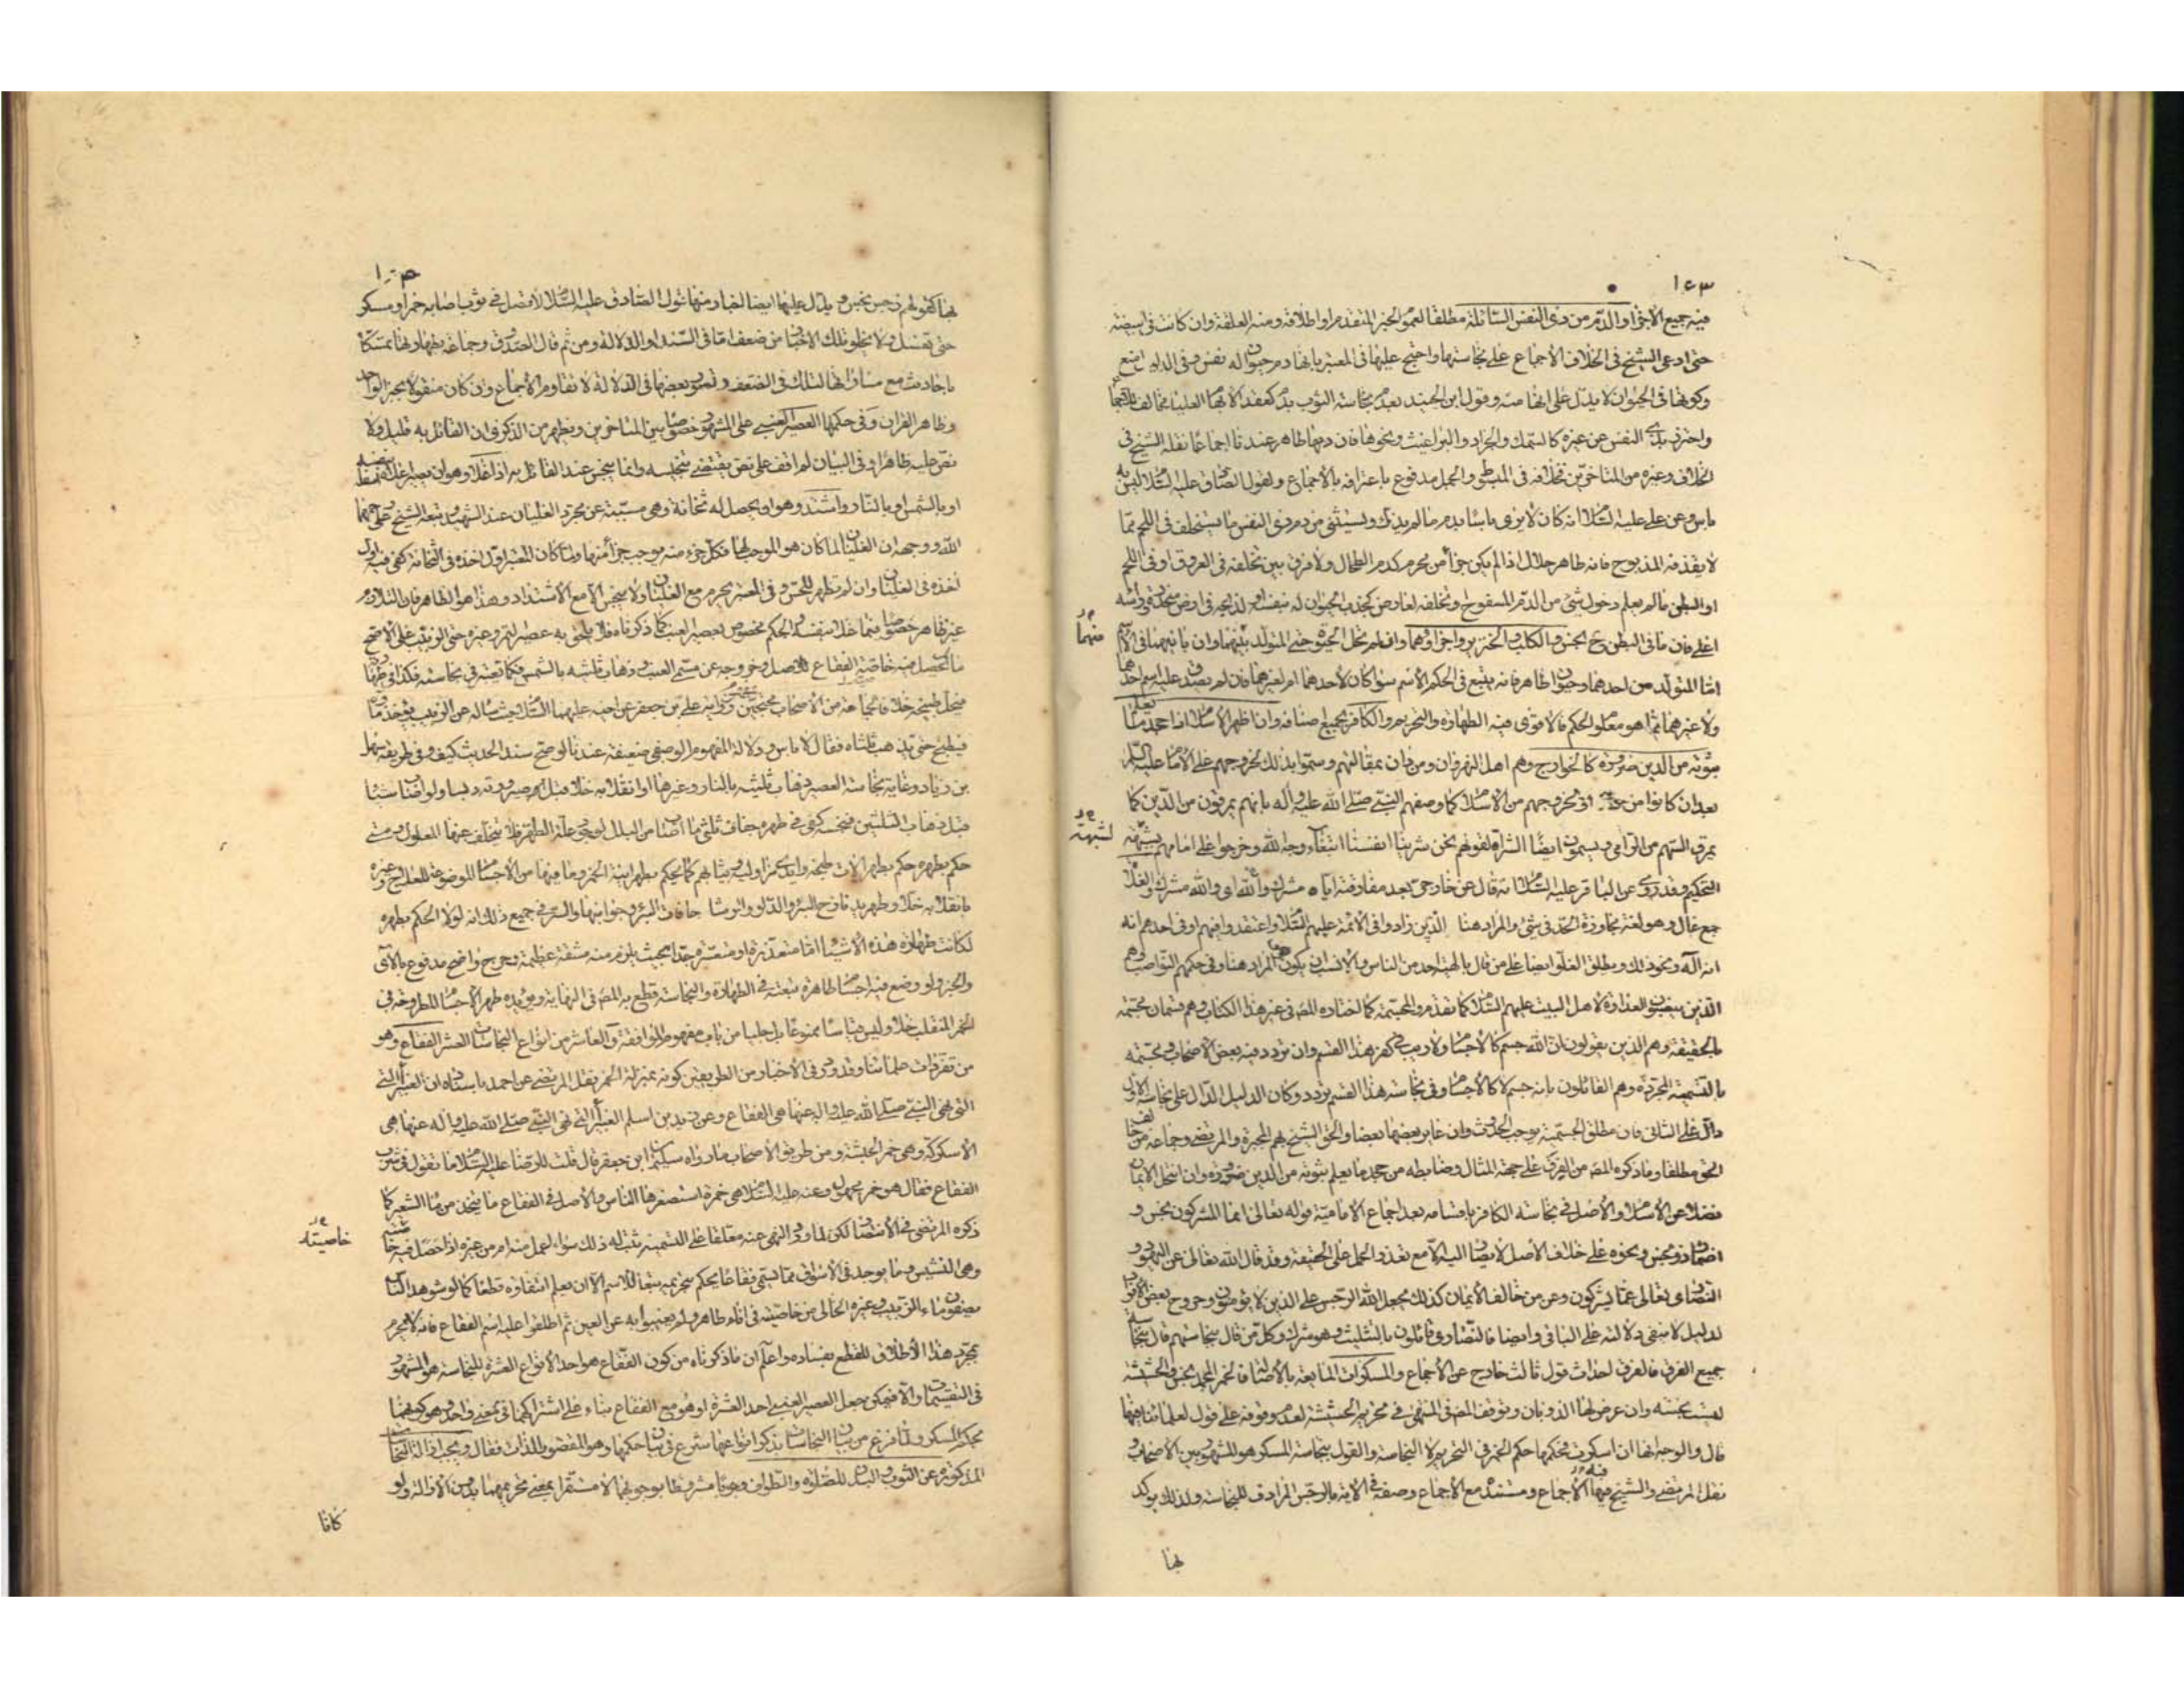 ١٤٣
فيه جميع الاجزاء والدم من ذى النفس السائلة مطلقا لعموم الخبر المتقدم او اطلاقه ومنه العلقة وان كانت فى البيضة
حتى ادعى الشيخ فى الخلاف الاجماع على نجاستها واحتج عليها فى المعتبر بانها دم حيوان له نفس وفى الدليل منع
وكونها فى الحيوان لا يدل على انها منه وقول ابن الجنيد بعدم نجاسة الثوب بدم كعقد الابهام العليا مخالف
واحترز بذى النفس عن غيره كالسمك والجراد والبراغيث ونحوها فان دمها طاهر عندنا اجماعا نقله الشيخ فى
الخلاف وغيره من المتاخرين بخلافه فى المبسوط والجمل مدفوع باعترافه بالاجماع ولقول الصادق عليه السلام ليس به
باس وعن على عليه السلام انه كان لا يرى باسا بدم ما لم يذك ويستثنى من دم ذى النفس ما يتخلف فى اللحم مما
لا يقذفه المذبوح فانه طاهر حلال اذا لم يكن جزأ من محرم كدم الطحال ولا فرق بين تخلفه فى العروق او فى اللحم
او البطن ما لم يعلم دخول شئ من الدم المسفوح وتخلفه لعارض كجذب الحيوان له بنفسه او لذبحه فى ارض منحدرة وراسه
اعلى فان ما فى البطن ح نجس والكلب والخنزير واجزاؤهما وان لم تحل الحيوة حتى المتولد بينهما وان باينهما فى الاسم
منهما
اما المتولد من احدهما وحيوان طاهر فانه يتبع فى الحكم الاسم سواء كان لاحدهما ام لغيرهما فان لم يصدق عليه اسم احدهما
ولا غيرهما مما هو معلوم الحكم فالاقوى فيه الطهارة والتحريم والكافر بجميع اصنافه وان اظهر الاسلام اذا جحد ما يعلم
ثبوته من الدين ضرورة كالخوارج وهم اهل النهروان ومن دان بمقالتهم وسموا بذلك لخروجهم على الامام عليه السلم
بعد ان كانوا من حزبه او لخروجهم من الاسلام كما وصفهم النبى صلى الله عليه وآله بانهم يمرقون من الدين كما
يمرق السهم من الرامى ويسمون ايضا الشراة لقولهم نحن شرينا انفسنا ابتغاء وجه الله وخرجوا على امامهم بشبهة
لشبهة
التحكيم وقد روى عن الباقر عليه السلام انه قال عن خارجى بعد مفارقته اياه مشرك والله اى والله مشرك والغلاة
جمع غال وهو لغة مجاوزة الحد فى شئ والمراد هنا الذين زادوا فى الائمة عليهم السلام واعتقدوا فيهم او فى احدهم انه
انه آله ونحو ذلك ويطلق الغلو ايضا على من قال بالهية احد من الناس والانسب ان يكون هو المراد هنا وفى حكمهم النواصب وهم
الذين ينصبون العداوة لاهل البيت عليهم السلام كما تقدم والمجسمة كما اختاره المص فى غير هذا الكتاب وهم قسمان مجسمة
بالحقيقة وهم الذين يقولون ان الله جسم كالاجسام ولا ريب فى كفر هذا القسم وان تردد فيه بعض الاصحاب ومجسمة
بالتسمية المجردة وهم القائلون بانه جسم لا كالاجسام وفى نجاسة هذا القسم تردد وكان الدليل الدال على نجاسة الاول
دال على الثانى فان مطلق الجسمية يوجب الحدوث وان غاير بعضها بعضا والحق الشيخ بهم المجبرة والمرتضى وجماعة من خالف
الحق مطلقا وما ذكره المص من الفرق على جهة المثال وضابطه من جحد ما يعلم ثبوته من الدين ضرورة وان انتحل الايمان
فضلا عن الاسلام والاصل فى نجاسة الكافر باقسامه بعد اجماع الامامية قوله تعالى انما المشركون نجس و
اضمار ذو نجس ونحوه على خلاف الاصل لا يصار اليه الا مع تعذر الحمل على الحقيقة وقد قال الله تعالى عن اليهود و
النصارى تعالى عما يشركون وعن من خالف الايمان كذلك يجعل الله الرجس على الذين لا يؤمنون وخروج بعض الافراد
لدليل لا ينفى دلالته على الباقى وايضا فالنصارى قائلون بالتثليث وهو شرك وكل من قال بنجاستهم قال بنجاسة
جميع الفرق فالفرق احداث قول ثالث خارج عن الاجماع والمسكرات المائعة بالاصالة فالخمر المجمد نجس والحشيشة
ليست نجسة وان عرض لها الذوبان وتوقف المص فى المنتهى فى تحريم الحشيشة لعدم وقوفه على قول لعلمائنا فيها
قال والوجه انها ان اسكرت فحكمها حكم الخمر فى التحريم لا النجاسة والقول بنجاسة المسكر هو المشهور بين الاصحاب و
نقل المرتضى والشيخ فيها الاجماع ومستنده مع الاجماع وصفه فى الاية بالرجس المرادف للنجاسة ولذلك يوكد
بها
بها كقولهم رجس نجس ويدل عليها ايضا اخبار منها قول الصادق عليه السلام لا تصل فى ثوب اصابه خمر او مسكر
حتى تغسل ولا يخلو تلك الاخبار من ضعف اما فى السند او الدلالة ومن ثم قال الصدوق وجماعة بطهارتها تمسكا
باحاديث مع مساواتها لتلك فى الضعف وقصور بعضها فى الدلالة لا تقاوم الاجماع وان كان منقولا بخبر الواحد
وظاهر القران وفى حكمها العصير العنبى على المشهور خصوصا بين المتاخرين ويظهر من الذكرى ان القائل به قليل ولا
نص عليه ظاهرا وفى البيان لم اقف على نص يقتضى تنجيسه وانما ينجس عند القائل به اذا غلا وهو ان يصير اعلاه اسفله بنفسه
او بالشمس او بالنار واشتد وهو ان يحصل له ثخانة وهى مسببة عن مجرد الغليان عند الشهيد وتبعه الشيخ على رحمهما
الله ووجهه ان الغليان لما كان هو الموجب لها فكل جزء منه يوجب جزأ منها ولما كان المعتبر اول اخذه فى الثخانة كفى فيه اول
اخذه فى الغليان وان لم تظهر للحس وفى المعتبر يحرم مع الغليان ولا ينجس الا مع الاشتداد وهذا هو الظاهر فان التلازم
غير ظاهر خصوصا فيما غلا بنفسه والحكم مخصوص بعصير العنب كما ذكرناه فلا يلحق به عصير التمر وغيره حتى الزبيب على الاصح
ما لم يحصل فيه خاصية الفقاع للاصل وخروجه عن مسمى العنب وذهاب ثلثيه بالشمس فكما تعتبر فى نجاسته فكذا فى
فيحل طبيخه خلافا لجماعة من الاصحاب محتجين برواية على بن جعفر عن اخيه عليهما السلام حيث ساله عن الزبيب يؤخذ ماؤه
فيطبخ حتى يذهب ثلثاه فقال لا باس ودلالة المفهوم الوصفى ضعيفة عندنا لو صح سند الحديث كيف وفى طريقه سهل
بن زياد وغاية نجاسة العصير ذهاب ثلثيه بالنار وغيرها او انقلابه خلا قبل او صيرورته دبسا ولو اصاب شيئا
قبل ذهاب الثلثين فنجسه كفى فى طهره جفاف ثلثى ما اصاب من البلل لوجود علة الطهر فلا يتخلف عنها المعلول ومتى
حكم بطهره حكم بطهر الات طبخه وايدى مزاوليه وثيابهم كما يحكم بطهر انية الخمر وما فيها من الاجسام الموضوعة للعلاج وغيره
بانقلابه خلا وطهر يد نازح البئر والدلو والرشا حافات البئر وجوانبها والسر فى جميع ذلك انه لولا الحكم بطهره
لكانت طهارة هذه الاشياء اما متعذرة او متعسرة جدا بحيث يلزم منه مشقة عظيمة وحرج واضح مدفوع بالآى
والخبر ولو وضع فيه اجساما طاهرة تبعته فى الطهارة والنجاسة قطع به المص فى النهاية ويؤيده طهر الاجسام المطروحة فى
الخمر المنقلب خلا وليس قياسا ممنوعا بل جليا من باب مفهوم الموافقة والعاشر من انواع النجاسات العشر الفقاع وهو
من تفردات علمائنا وقد ورد فى الاخبار من الطريقين كونه بمنزلة الخمر نقل المرتضى عن احمد باسناده ان الغبيرا التى
التى نهى النبى صلى الله عليه واله عنها هى الفقاع وعن زيد بن اسلم الغبيرا التى نهى النبى صلى الله عليه واله عنها هى
الاسكركة وهى خمر الحبشة ومن طريق الاصحاب ما رواه سليمان ابن جعفر قال قلت للرضا عليه السلام ما تقول فى شرب
الفقاع فقال هو خمر مجهول وعنه عليه السلام هى خمرة استصغرها الناس والاصل فى الفقاع ما يتخذ من ماء الشعير كما
ذكره المرتضى فى الانتصار لكن لما ورد النهى عنه معلقا على التسمية ثبت له ذلك سواء عمل منه ام من غيره اذا حصل فيه خاصيته
خاصيته
وهى النشيش وما يوجد فى الاسواق مما يسمى فقاعا يحكم بتحريمه تبعا للاسم الا ان يعلم انتفاؤه قطعا كما لو شوهد
يضعون ماء الزبيب وغيره الخالى من خاصيته فى اناء طاهر ولم يغيبوا به عن العين ثم اطلقوا عليه اسم الفقاع فانه لا يحرم
بمجرد هذا الاطلاق للقطع بفساده واعلم ان ما ذكرناه من كون الفقاع هو احد الانواع العشرة للنجاسة هو المشهور
فى التقسيم والا فيمكن جعل العصير العنبى احد العشرة او هو مع الفقاع بناء على اشتراكهما فى معنى واحد وهو كونهما
بحكم المسكر ولما فرغ من بيان النجاسات بذكر انواعها شرع فى بيان حكمها وهو المقصود بالذات فقال ويجب ازالة النجاسات
المذكورة عن الثوب والبدن للصلوة والطواف وجوبا مشروطا بوجوبهما لا مستقرا بمعنى تحريمهما بدون الازالة ولو
كانا